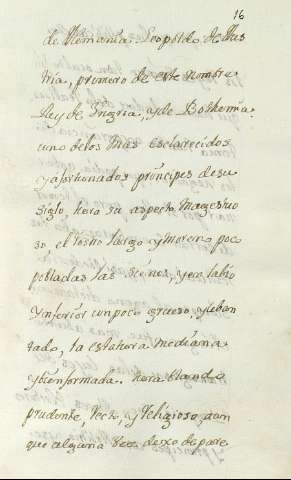 16
de Alemania. Leopoldo de Aus
tria, primero de este nombre
Rey de Ungria, y de Bohemia.
uno de los mas esclarecidos
y afortunados principes de su
siglo, hera su aspecto Magestuo
so el rostro largo y moreno, poco
pobladas las sienes, y en labio
ynferior un poco grueso, y leban
tado, la estatura mediana
y bien formada. hera blando
prudente, recto, y religioso, aun
que alguna vez dexo de pare